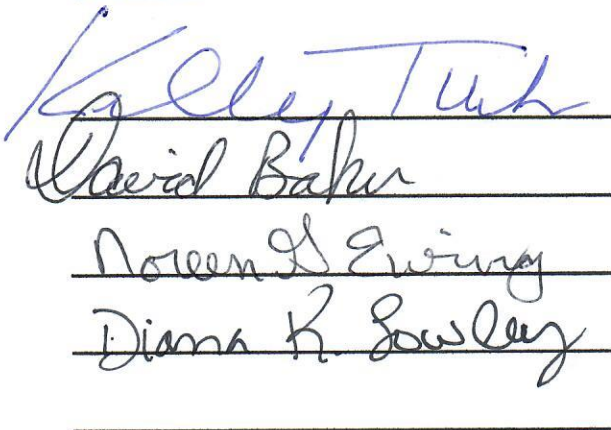 Kelly
David Baker
Noreen G Ewing
Diana K. Lowley